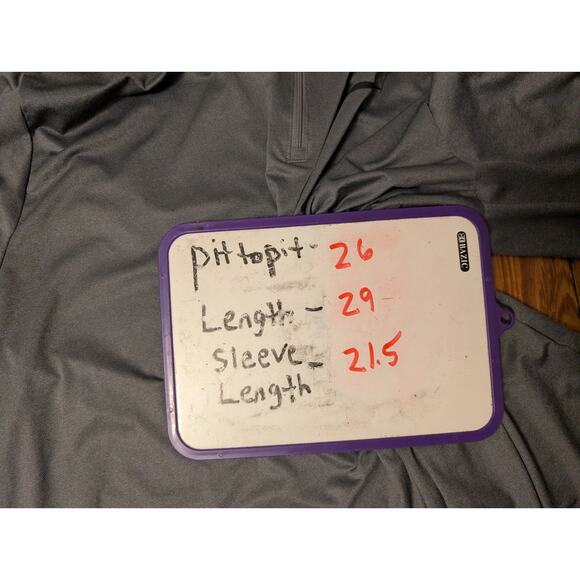 pit to pit - 26
Length - 29
Sleeve - 21.5
Length
BAZIC